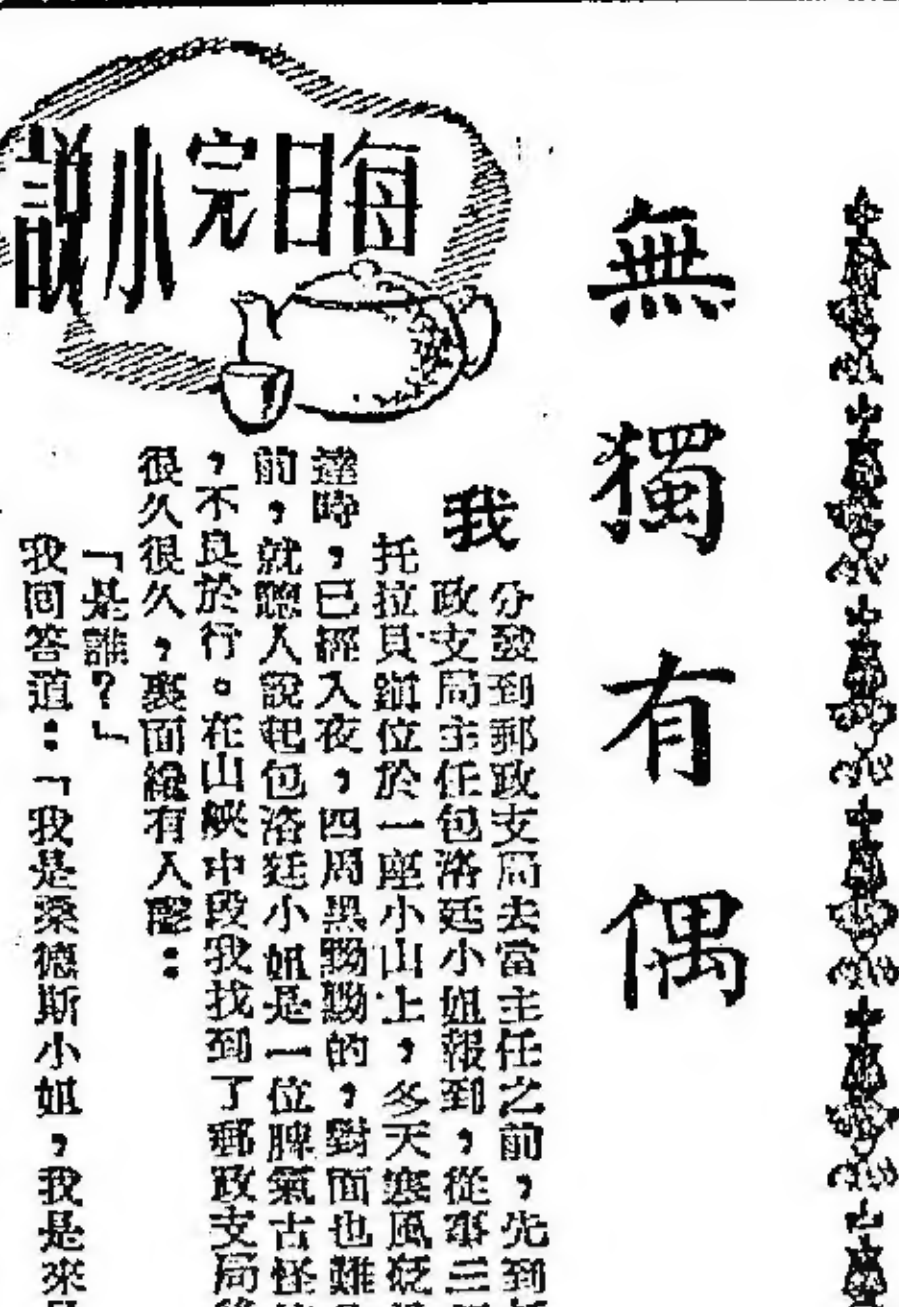 每日完小說
無獨有偶
我
分發到郵政支局去當主任之前，先到
政支局主任包洛廷小姐報到，從事三
托拉貝鎮位於一座小山上，冬天寒風砭
達時，已經入夜，四周黑黝黝的，對面也難
前，就聽人說起包洛廷小姐是一位脾氣古怪
，不良於行。在山峽中段我找到了郵政支局
很久很久，裏面纔有人應：
「是誰？」
我回答道：「我是桑德斯小姐，我是來